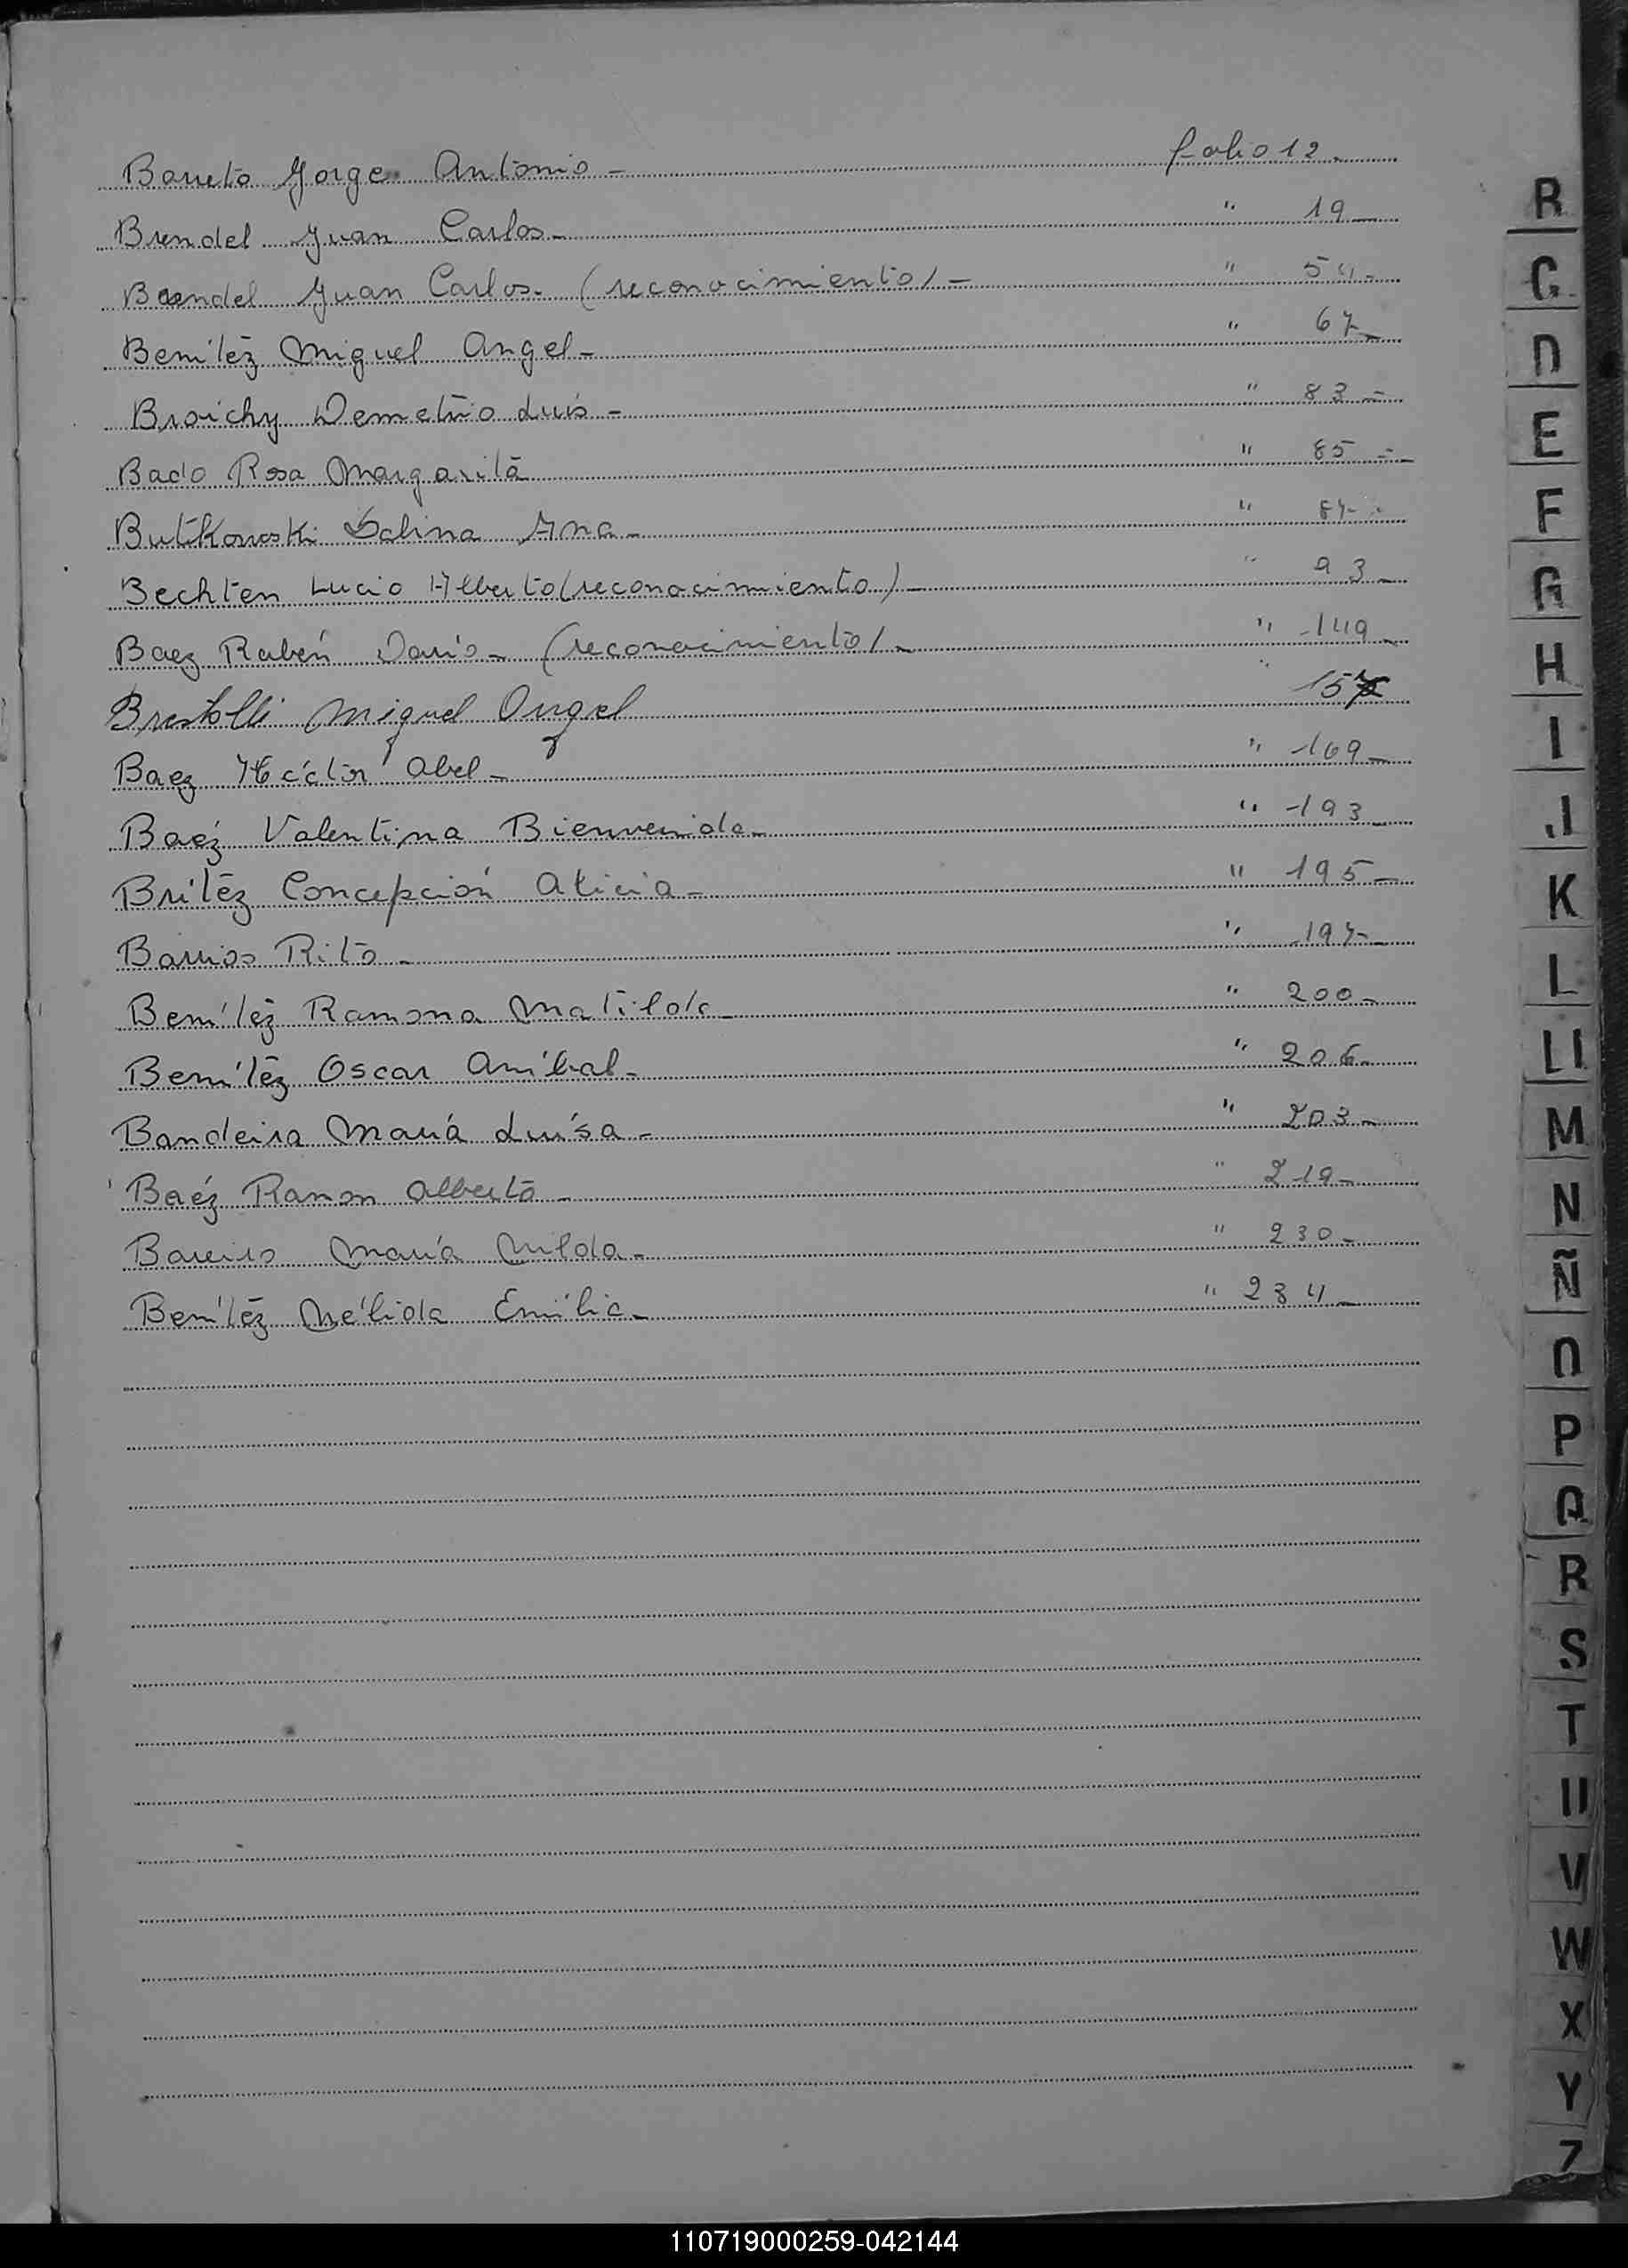 Barreto Jorge Antonio - folio 12.
Brendel Juan Carlos - " 19 -
Brendel Juan Carlos. (reconocimiento) - " 54 -
Benítez Miguel Angel - " 67 -
Broichy Demetrio Luis - " 83 -
Bado Rosa Margarita " 85 -
Butkowski Ana - " 87 -
Bechten Lucio Alberto (reconocimiento) - " 93 -
Baez Rubén Dario - (reconocimiento) - " 149 -
Miguel Angel " 157
Baez Héctor Abel - " 169 -
Baéz Valentina Bienvenida - " 193 -
Brítez Concepción Alicia - " 195 -
Barrios Rito - " 197 -
Benítez Ramona Matilde - " 200 -
Benítez Oscar Aníbal - " 206 -
Bandeira María Luísa - " 203 -
Baéz Ramon Alberto - " 219 -
Bareiro María Nilda - " 230 -
Benítez Nélida Emilia - " 234 -
B
C
D
E
F
G
H
I
J
K
L
LL
M
N
Ñ
O
P
Q
R
S
T
U
V
W
X
Y
Z
110719000259-042144